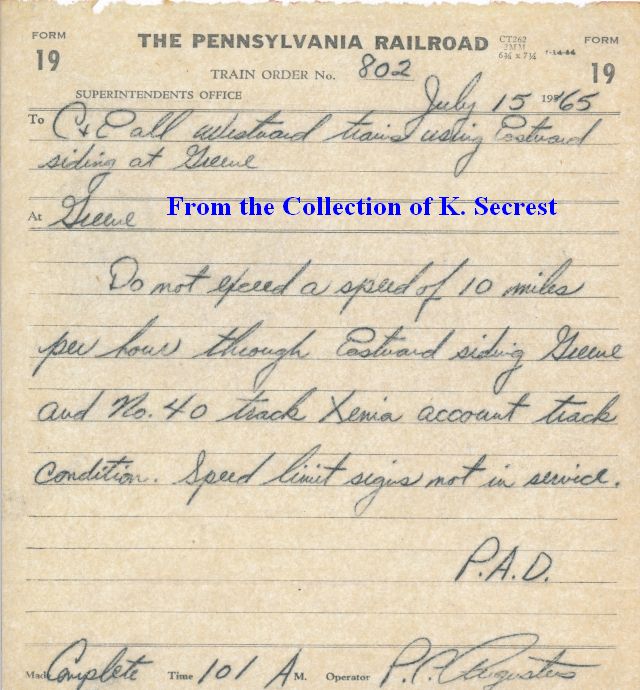 FORM 19 THE PENNSYLVANIA RAILROAD CT262 2MM 6¾ x 7¼ 1-14-64 FORM 19
TRAIN ORDER No. 802
SUPERINTENDENTS OFFICE July 15 1965
To C+E all westward trains using Eastward
siding at Greene
At Greene From the Collection of K. Secrest
Do not exceed a speed of 10 miles
per hour through Eastward siding Greene
and No. 40 track Xenia account track
condition. Speed limit signs not in service.
P.A.D.
Made Complete Time 101 A M. Operator P.P.